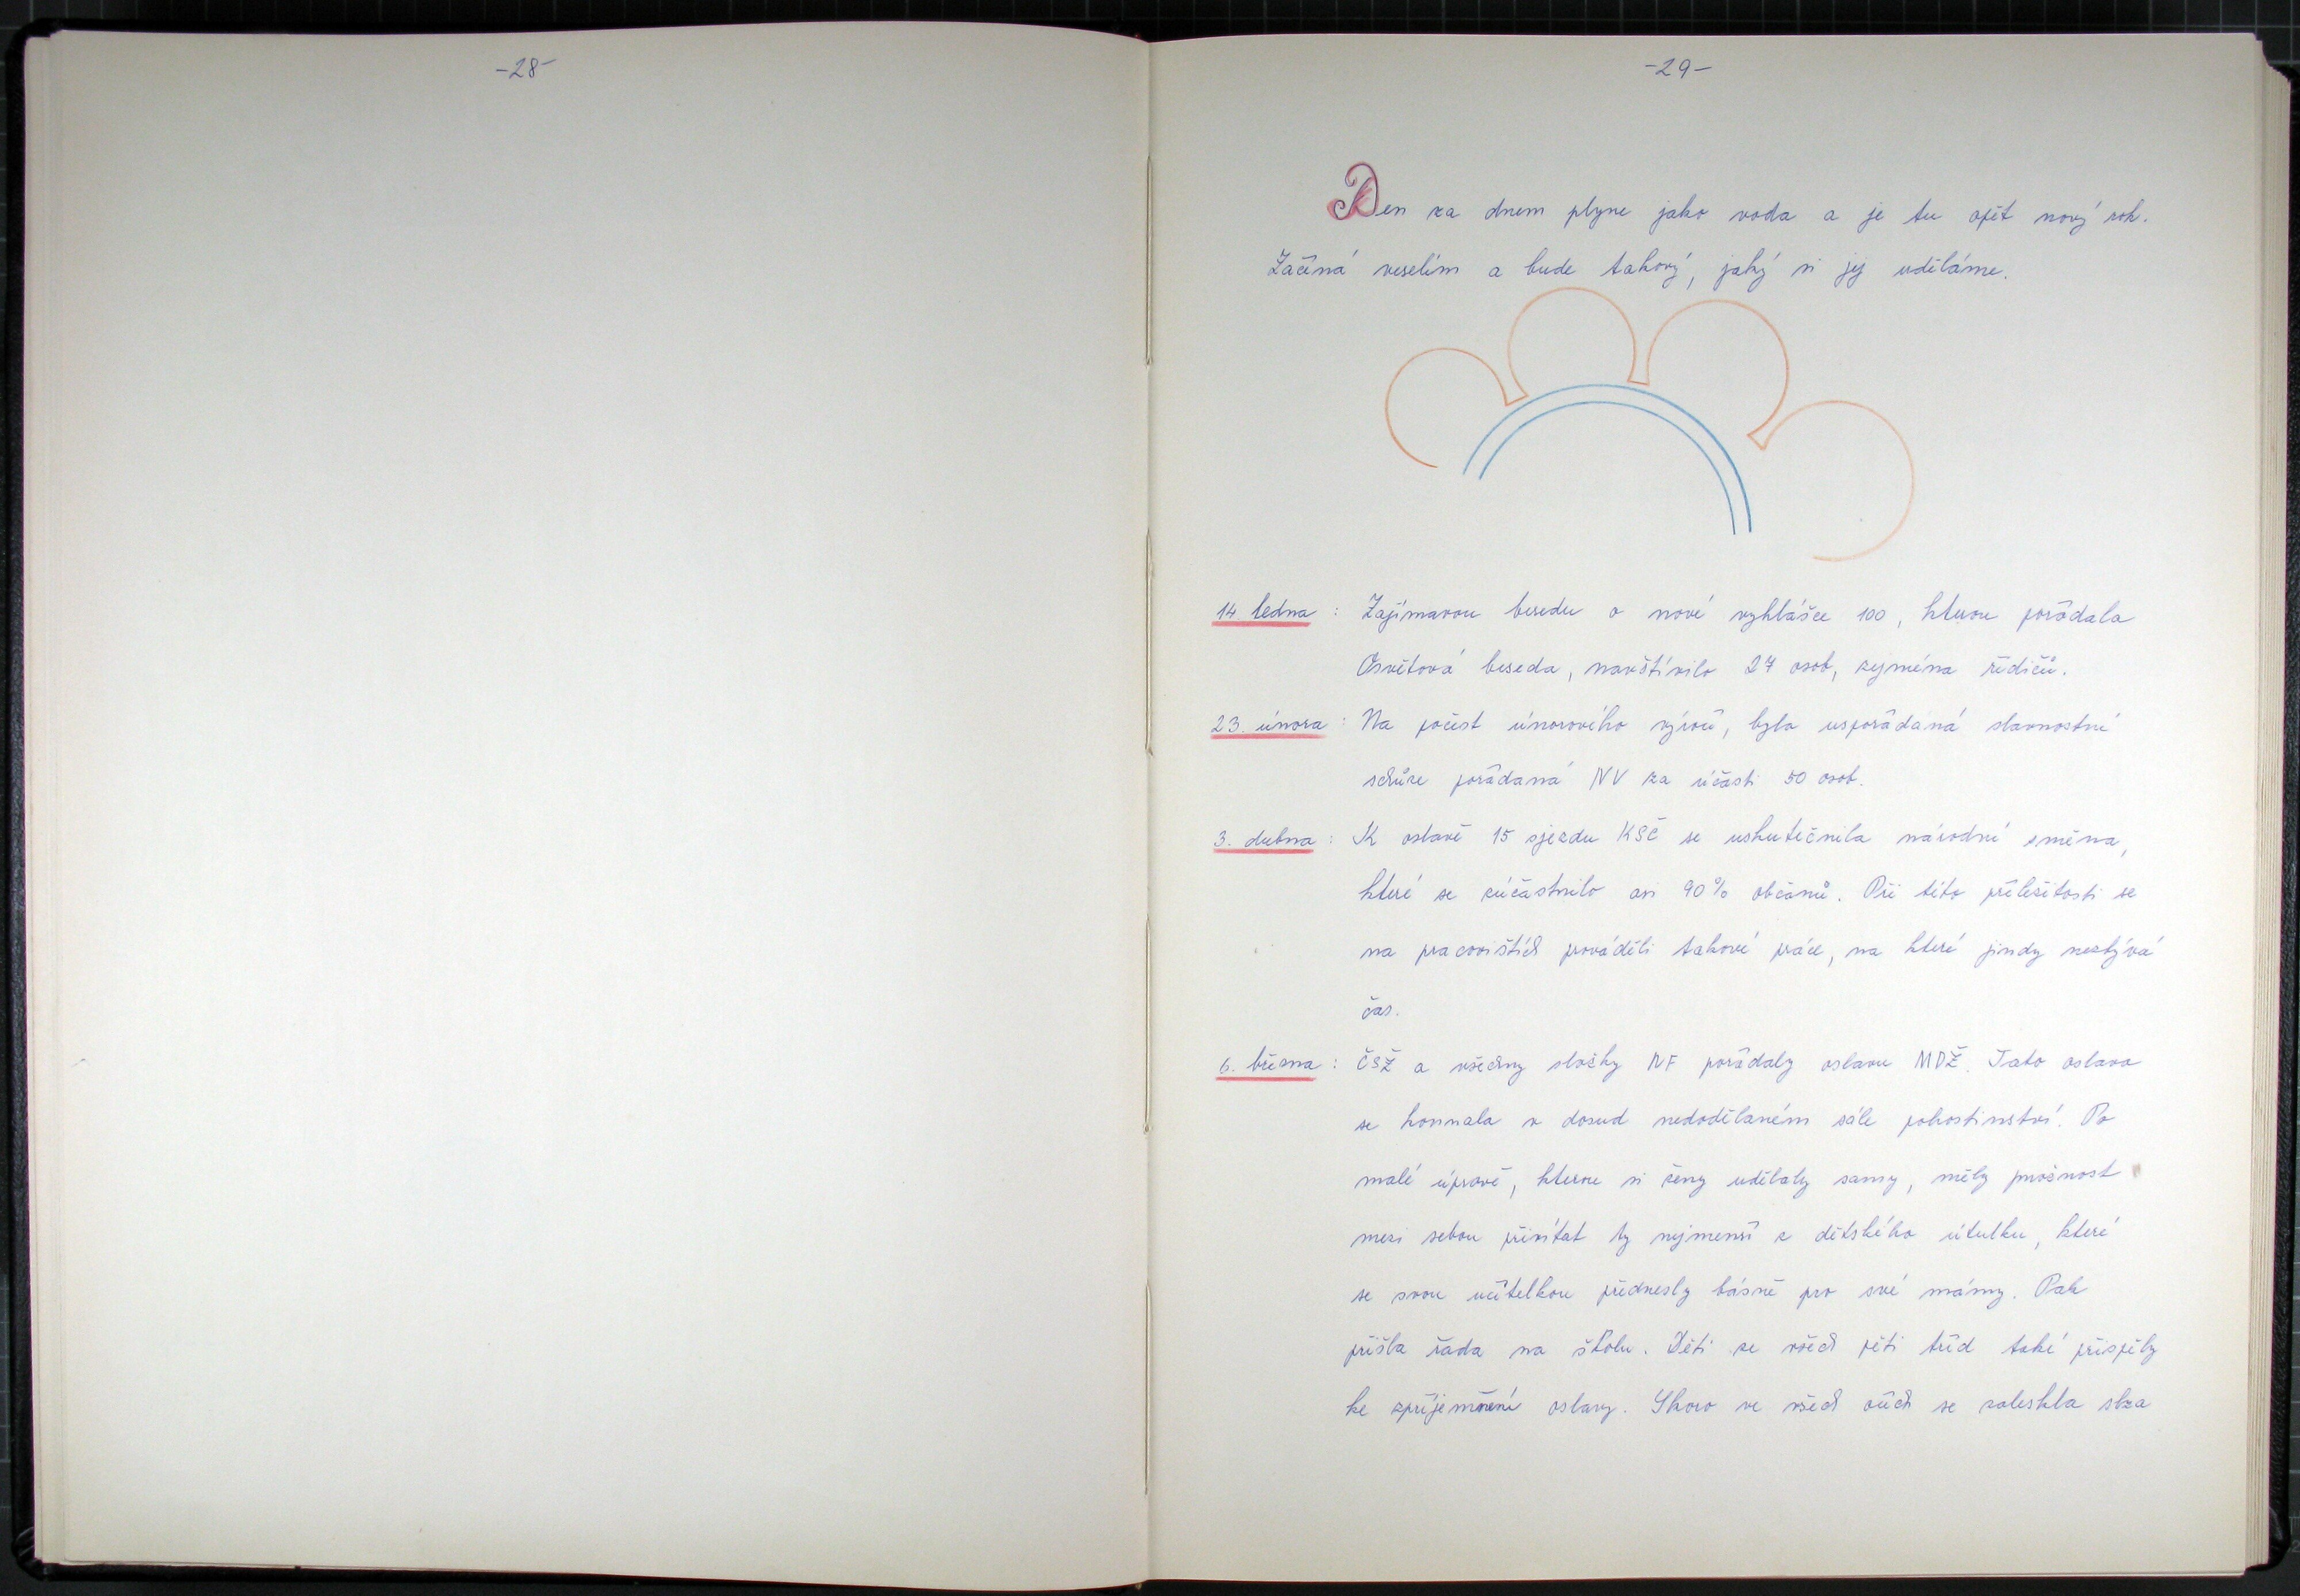 -28-
-29-
Den za dnem plyne jako voda a je tu opět nový rok.
Začíná veselím a bude takový, jaký si jej uděláme.
14. ledna : Zajímavou besedu o nové vyhlášce 100, kterou pořádala
Osvětová beseda, navštívilo 27 osob, zejména řidičů.
23. února : Na počest únorového výročí, byla uspořádaná slavnostní
schůze pořádaná NV za účasti 50 osob.
3. dubna : K oslavě 15 sjezdu KSČ se uskutečnila národní směna,
které se zúčastnilo asi 90% občanů. Při této příležitosti se
na pracovištích prováděli takové práce, na které jindy nezbývá
čas.
6. března : ČSŽ a všechny složky NF pořádaly oslavu MDŽ. Tato oslava
se konnala v dosud nedodělaném sále pohostinství. Po
malé úpravě, kterou si ženy udělaly samy, měly možnost
mezi sebou přivítat ty nejmenší z dětského útulku, které
se svou učitelkou přednesly básně pro své mámy. Pak
přišla řada na školu. Děti ze všech pěti tříd také přispěly
ke zpříjemnění oslavy. Skoro ve všech očích se zaleskla slza